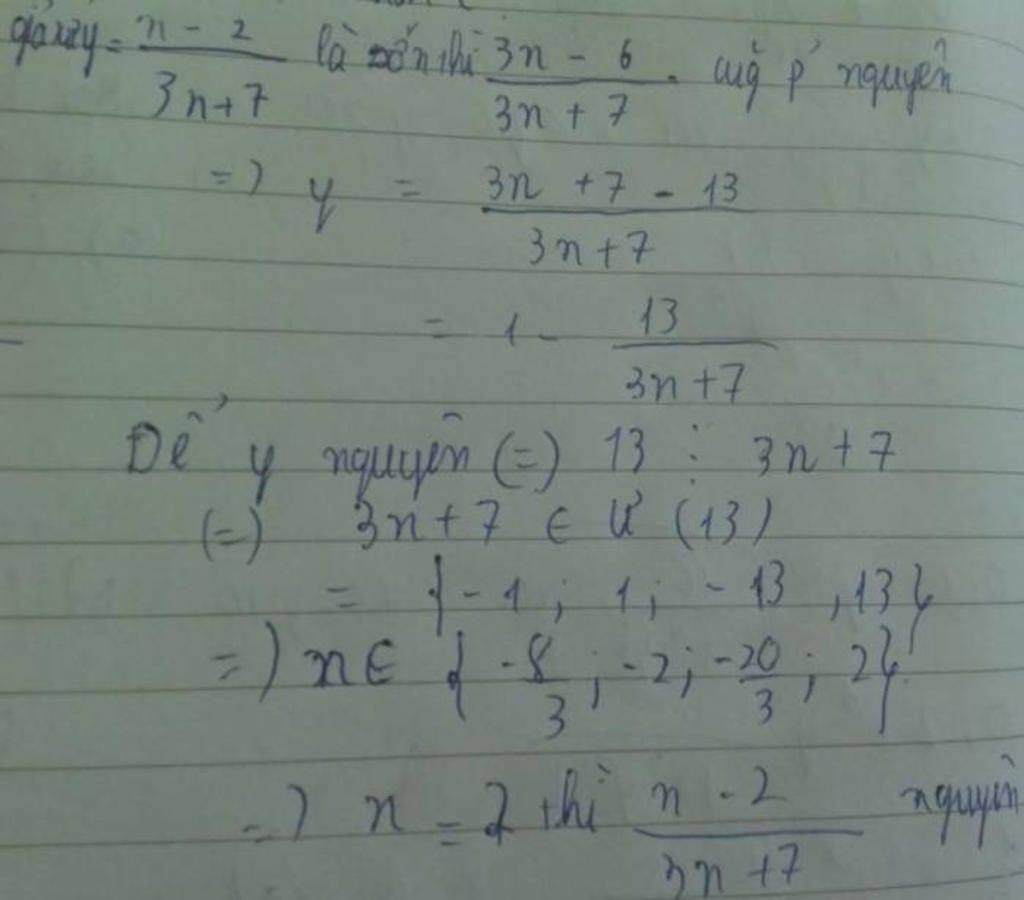 giả sử y = \frac{n - 2}{3n+7} là số n thì \frac{3n - 6}{3n + 7} cũg p' nguyên
=) y = \frac{3n + 7 - 13}{3n+7}
= 1 - \frac{13}{3n+7}
Để y nguyên (=) 13 ⋮ 3n+7
(=) 3n+7 ∈ Ư (13)
= {-1; 1; -13, 13}
=) n ∈ {\frac{-8}{3}; -2; \frac{-20}{3}; 2}
=) n = 2 thì \frac{n - 2}{3n +7} nguyên